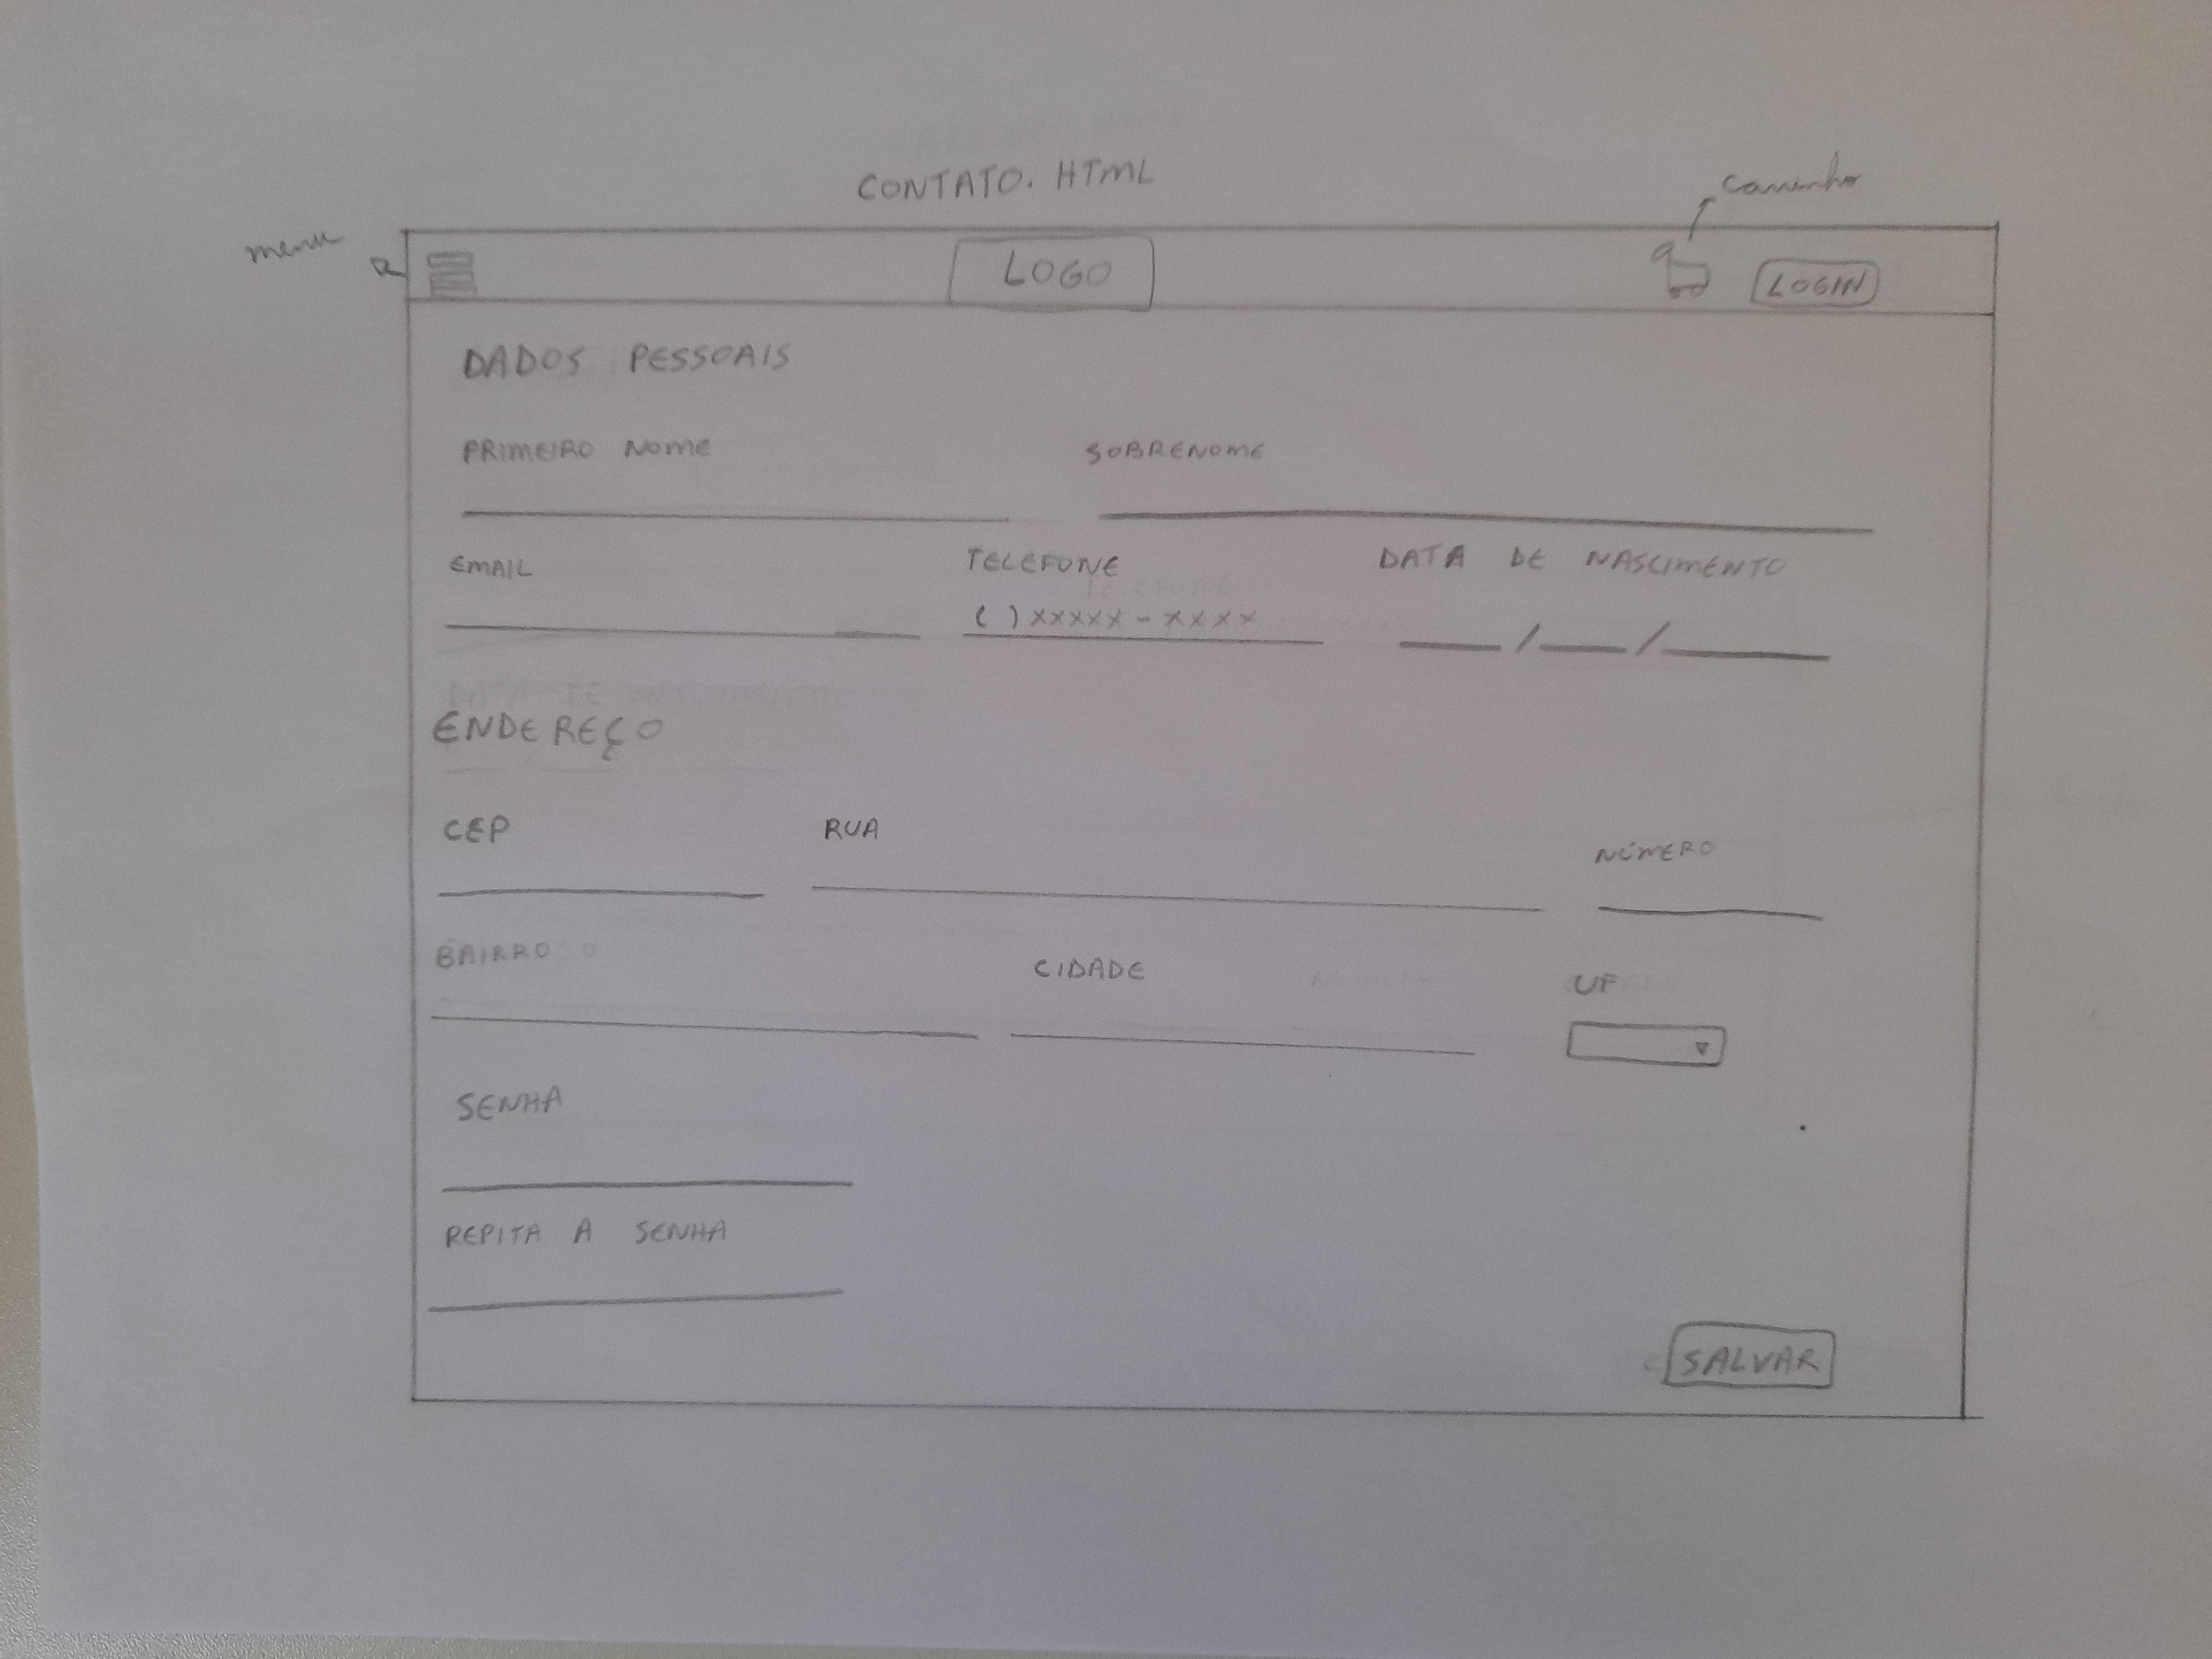 CONTATO. HTML
carrinho
menu
LOGO
LOGIN
DADOS PESSOAIS
PRIMEIRO NOME SOBRENOME
EMAIL TELEFONE DATA DE NASCIMENTO
( ) xxxxx - xxxx __ / __ / __
ENDEREÇO
CEP RUA NÚMERO
BAIRRO CIDADE UF
SENHA
REPITA A SENHA
SALVAR